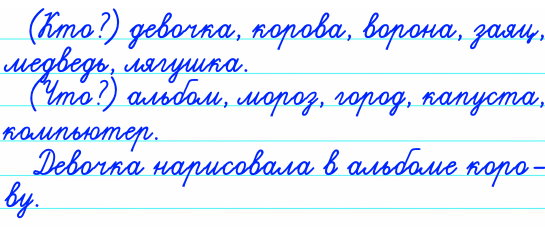 (Кто?) девочка, корова, ворона, заяц,
медведь, лягушка.
(Что?) альбом, мороз, город, капуста,
компьютер.
Девочка нарисовала в альбоме коро-
ву.